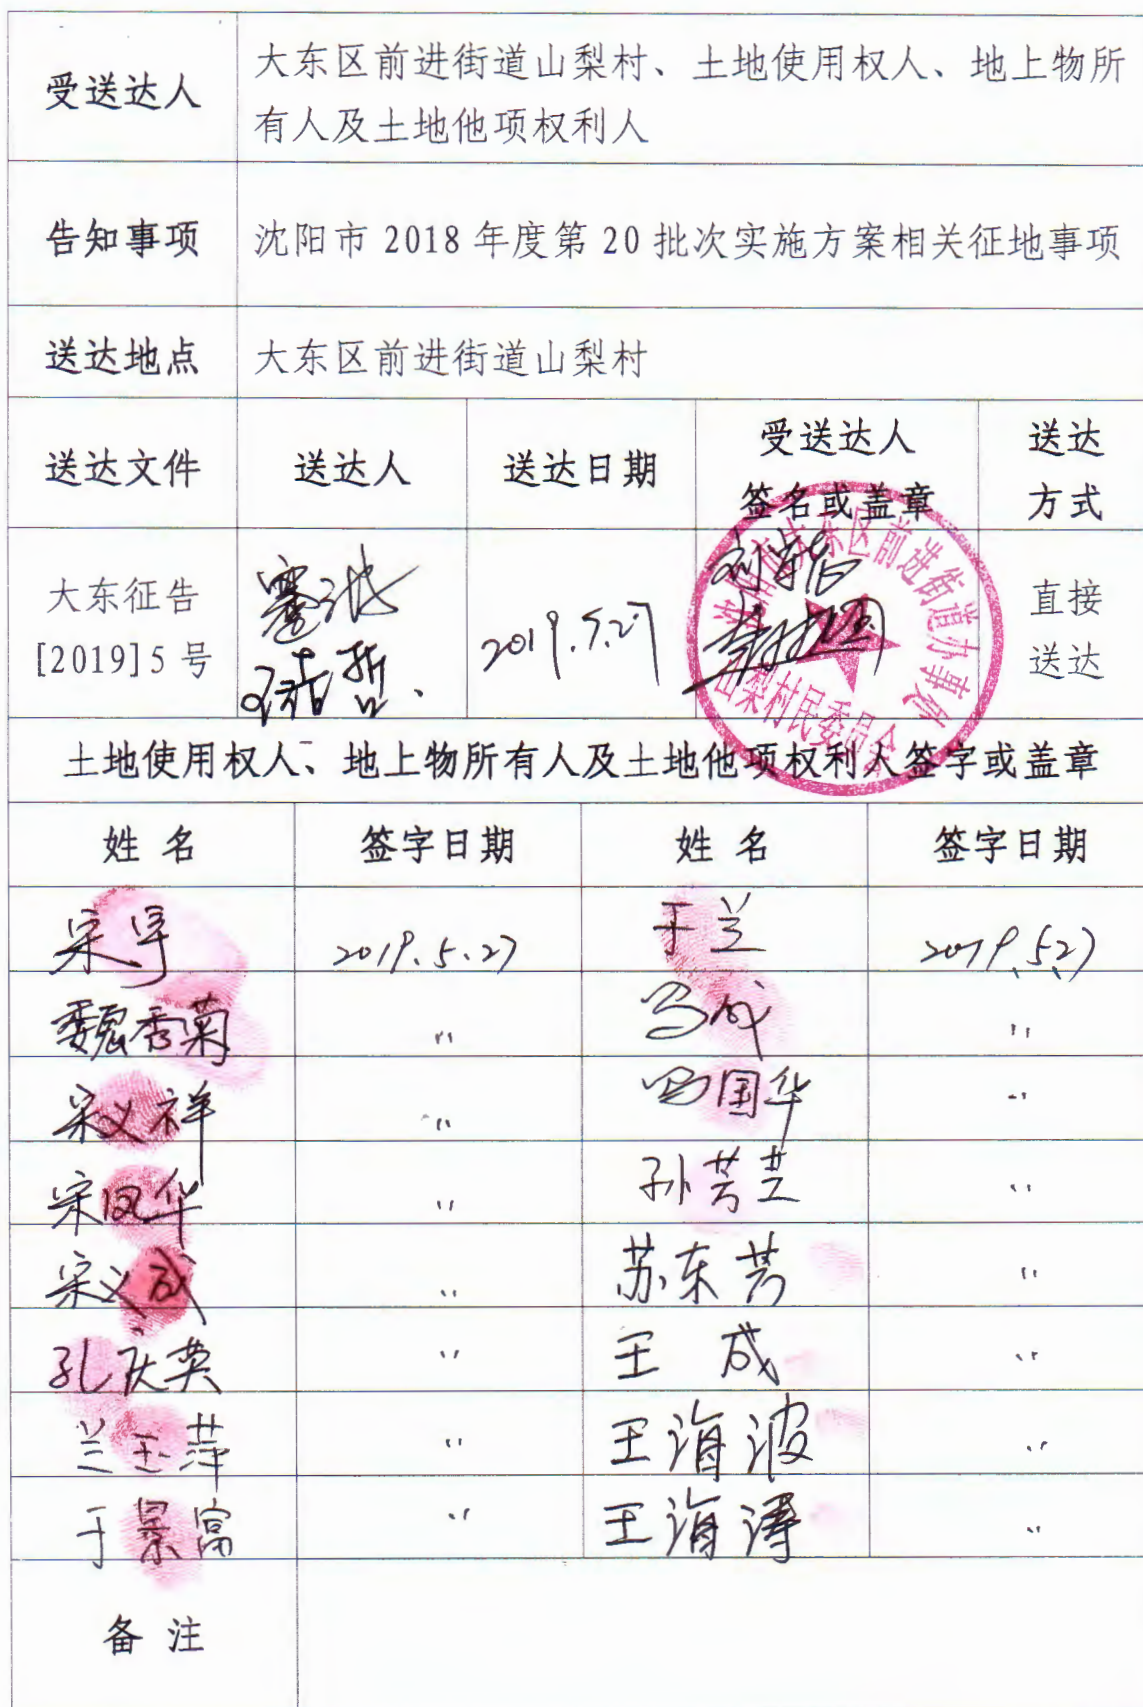 受送达人
大东区前进街道山梨村、土地使用权人、地上物所
有人及土地他项权利人
告知事项
沈阳市 2018 年度第 20 批次实施方案相关征地事项
送达地点
大东区前进街道山梨村
送达文件
送达人
送达日期
受送达人
签名或盖章
送达
方式
大东征告
[2019]5 号
2019.5.27
沈阳市大东区前进街道办事处
山梨村民委员会
直接
送达
土地使用权人、地上物所有人及土地他项权利人签字或盖章
姓 名
签字日期
姓 名
签字日期
2019.5.27
于兰
2019.5.27
魏秀菊
〃
马成
〃
宋义祥
〃
国华
〃
宋凤华
〃
孙芳芝
〃
宋义成
〃
苏东芳
〃
孔庆英
〃
王 成
〃
兰玉萍
〃
王海波
〃
于景富
〃
王海涛
〃
备 注